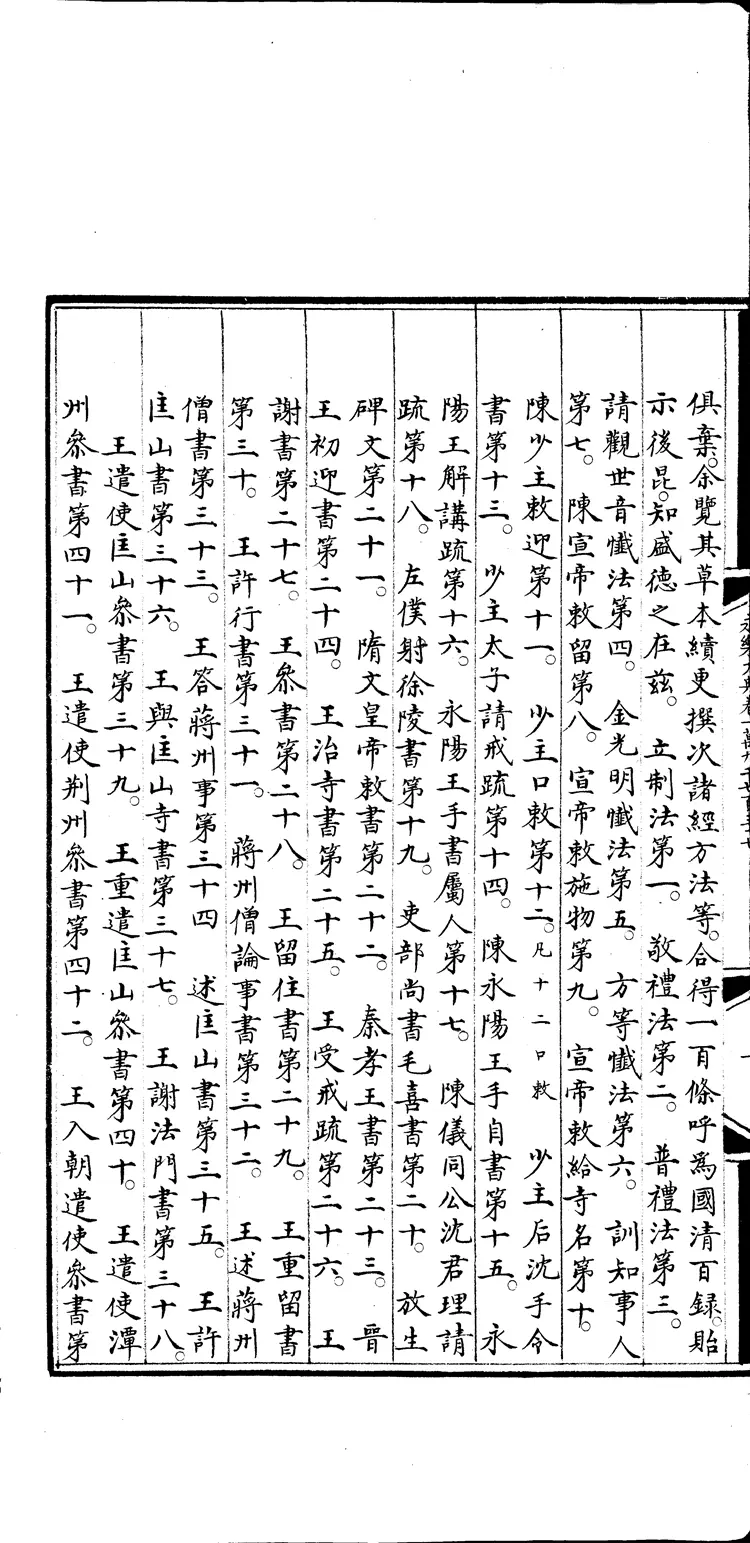 俱棄。余覽其草本續更撰次諸經方法等。合得一百條呼爲國清百録。貽
示後昆。知盛德之在兹。 立制法第一。 敬禮法第二。 普禮法第三。
請觀世音懺法第四。 金光明懺法第五。 方等懺法第六。 訓知事人
第七。 陳宣帝敕留第八。 宣帝敕施物第九。 宣帝敕給寺名第十。
陳少主敕迎第十一。 少主口敕第十二。凡十二口敕 少主后沈手令
書第十三。 少主太子請戒疏第十四。 陳永陽王手自書第十五。 永
陽王解講疏第十六。 永陽王手書屬人第十七。 陳儀同公沈君理請
疏第十八。 左僕射徐陵書第十九。 吏部尚書毛喜書第二十。 放生
碑文第二十一。 隋文皇帝敕書第二十二。 秦孝王書第二十三。 晉
王初迎書第二十四。 王治寺書第二十五。 王受戒疏第二十六。 王
謝書第二十七。 王參書第二十八。 王留住書第二十九。 王重留書
第三十。 王許行書第三十一。 蔣州僧論事書第三十二。 王述蔣州
僧書第三十三。 王答蔣州事第三十四 述匡山書第三十五。 王許
匡山書第三十六。 王與匡山寺書第三十七。 王謝法門書第三十八。
王遣使匡山參書第三十九。 王重遣匡山參書第四十。 王遣使潭
州參書第四十一。 王遣使荆州參書第四十二。 王入朝遣使參書第